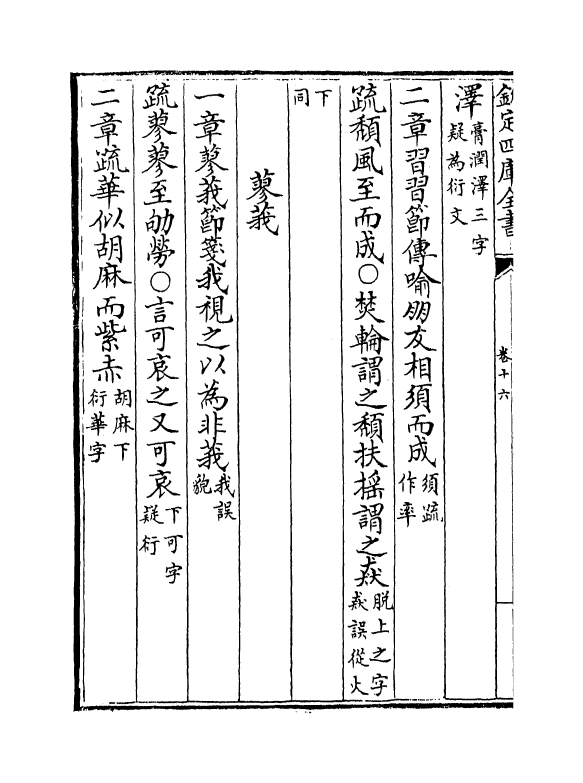 欽定四庫全書
卷十六
澤膏潤澤三字疑為衍文
二章習習節傳喻朋友相須而成須疏作率
疏頹風至而成○焚輪謂之頹扶揺謂之猋脱上之字猋誤從火
下同
蓼莪
一章蓼莪節箋我視之以為非莪我誤貌
疏蓼蓼至劬勞○言可哀之又可哀下可字疑衍
二章疏華似胡麻而紫赤胡麻下衍華字